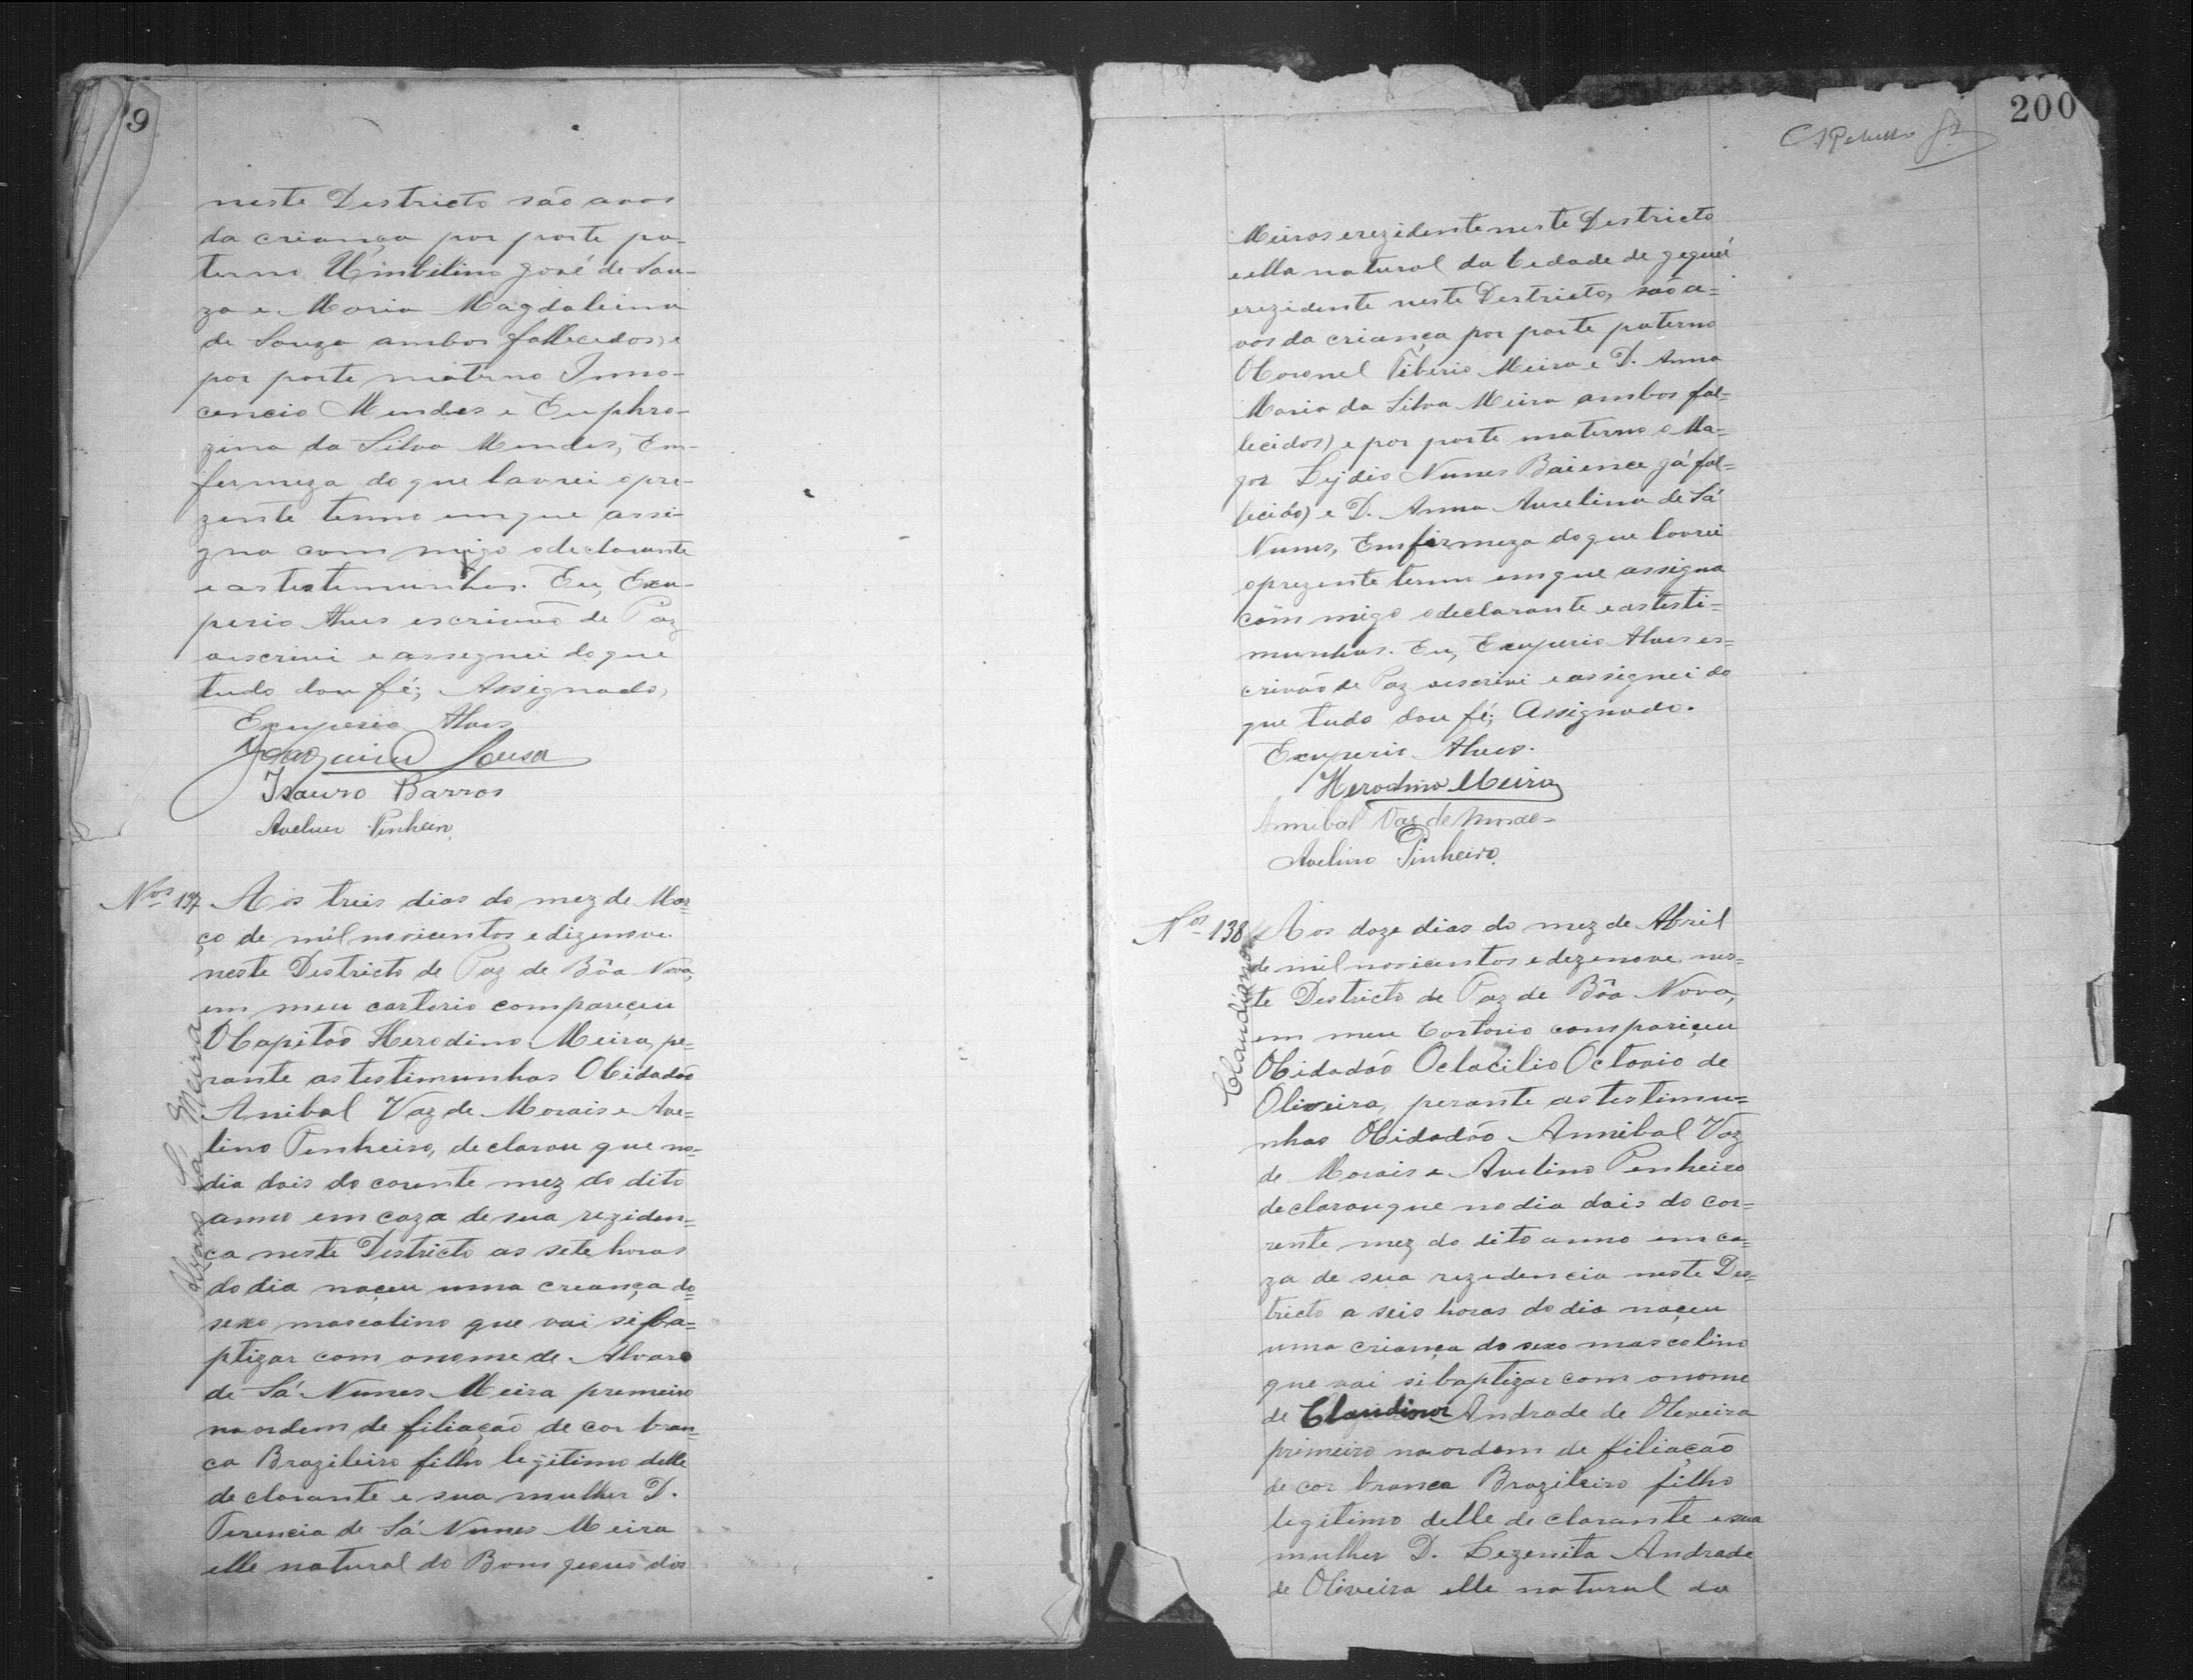 9
neste Destricto são avos
da criança por parte pa-
terno Umbilino José de Sou-
za e Maria Magdaleina
de Souza ambos fallecedos, e
por parte materno Inno-
cencio Mendes e Euphro-
zina da Silva Mendes, Em
fermeza do que lavrei o pre-
zente termo em que assi-
gna com migo o declarante
e as testemunhas. Eu, Exu-
perio Alves escrivão de Paz
o escrivi e assegnei do que
tudo dou fé; Assignado,
Exuperio Alves
Joaquim Sousa
Isauro Barros
Avelino Pinheiro
Nos 137 Aos treis dias do mez de Mar=
ço de mil novicentos e dizenove
neste Destricto de Paz de Bôa Nova,
em meu cartorio compareçeu
O Capitão Herodino Meira, pe=
rante as testimunhas O Cidadão
Anibal Vaz de Morais e Ave=
lino Penheiro, declarou que no
dia dois do corente mez do dito
anno em caza de sua reziden=
ca neste Destricto as sete horas
do dia naçeu uma creança do
sexo mascolino que vai si ba=
ptizar com o nome de Alvaro
de Sá Nunes Meira premeiro
na ordem de filiação de cor bran=
ca Brazileiro filho legitimo delle
declarante e sua mulher D.
Terencia de Sá Nunes Meira
elle natural do Bom Jesus dos
Alvaro Sá Meira
200
Meiras e rezidente neste Destricto
e ella natural da Cedade de Jequié
e rezidente neste Destricto, são a=
vós da criança por parte paterno
O Coronel Tiberio Meira e D. Anna
Maria da Silva Meira ambos fal=
lecidos) e por parte materno o Ma=
jor Lijdio Nunes Baience já fal=
lecido) e D. Anna Aurelina de Sá
Nunes, Em firmeza do que lavrei
o prezente termo em que assigna
com migo o declarante e as testi=
munhas. Eu, Exuperio Alves es=
crivão de Paz o escrivi e assignei do
que tudo dou fé; Assignado.
Exuperio Alves.
Herodino Meira
Annibal Vaz de Moraes
Avelino Pinheiro.
Nos 138 Aos doze dias do mez de Abril
de mil novicentos e dezenove, nes=
te Destricto de Paz de Bôa Nova,
em meu Cartorio compariçeu
O Cidadão Octacilio Octavio de
Oliveira, perante as testimu=
nhas O Cidadão Annibal Vaz
de Morais e Avelino Penheiro
declarou que no dia dois do cor=
rente mez do dito anno em ca=
za de sua rezedencia neste Des=
tricto a seis horas do dia naçeu
uma criança do sexo mascolino
que vai si baptizar com o nome
de Claudionor Andrade de Oleveira
primeiro na ordem de filiação
de cor branca Brazileiro filho
legitimo delle declarante e sua
mulher D. Lezenita Andrade
de Oliveira elle natural da
Claudionor